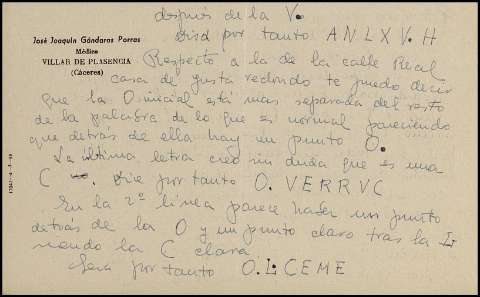 después de la V.
Dird por tanto ANLXV.H
José Joaquín Gándaras Porras
Médico
VILLAR DE PLASENCIA
(Cáceres)
Respecto a la de la calle Real
casa de justa redondo te puedo decir
que la O inicial está mas separada del resto
de la palabra de lo que es normal pareciendo
que detrás de ella hay un punto O.
La última letra creo sin duda que es una
C. Dice por tanto O.VERRVC
En la 2ª linea parece haber un punto
detrás de la O y un punto claro tras la L
siendo la C clara.
Sera por tanto O.L.CEME